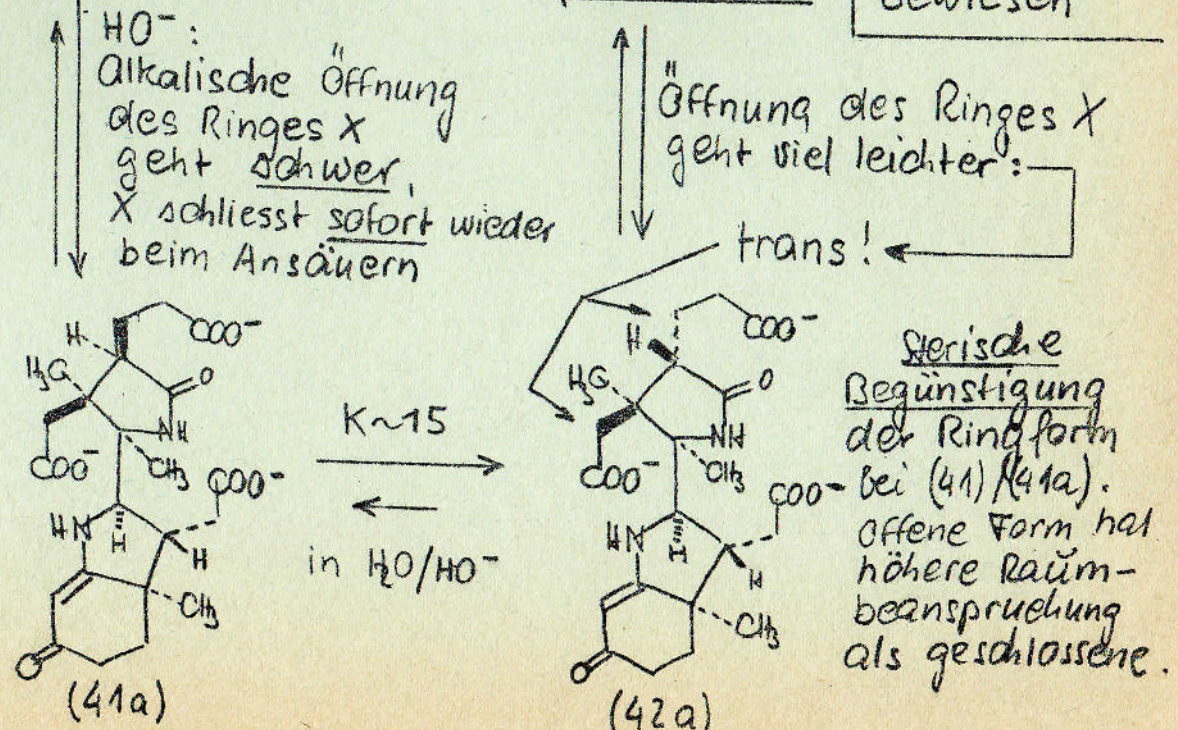 bewiesen
HO⁻:
Alkalische Öffnung
des Ringes X
geht schwer,
X schliesst sofort wieder
beim Ansäuern
Öffnung des Ringes X
geht viel leichter:
trans!
H
COO⁻
H₃C
O
NH
COO⁻
CH₃
COO⁻
HN
H
H
CH₃
O
(41a)
K~15
in H₂O/HO⁻
H
COO⁻
H₃C
O
NH
COO⁻
CH₃
COO⁻
HN
H
H
CH₃
O
(42a)
Sterische
Begünstigung
der Ringform
bei (41)/(41a).
offene Form hat
höhere Raum-
beanspruchung
als geschlossene.